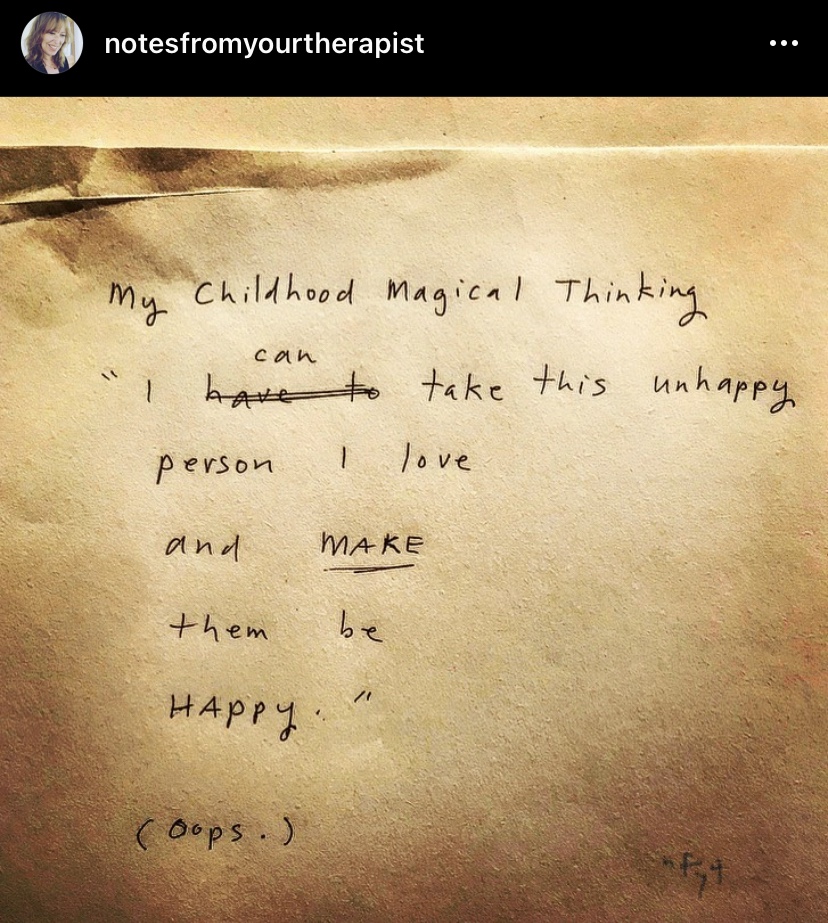 notesfromyourtherapist
My Childhood Magical Thinking
can
"I have to take this unhappy
person I love
and MAKE
them be
HAppy."
(Oops.)
nfyt